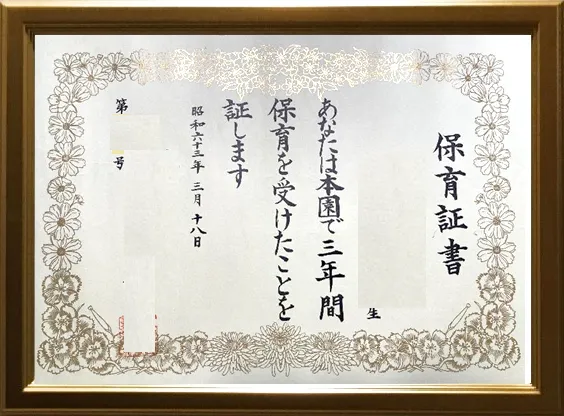 保育証書
生
あなたは本園で三年間
保育を受けたことを
証します
昭和六十三年 三月 十八日
第
号